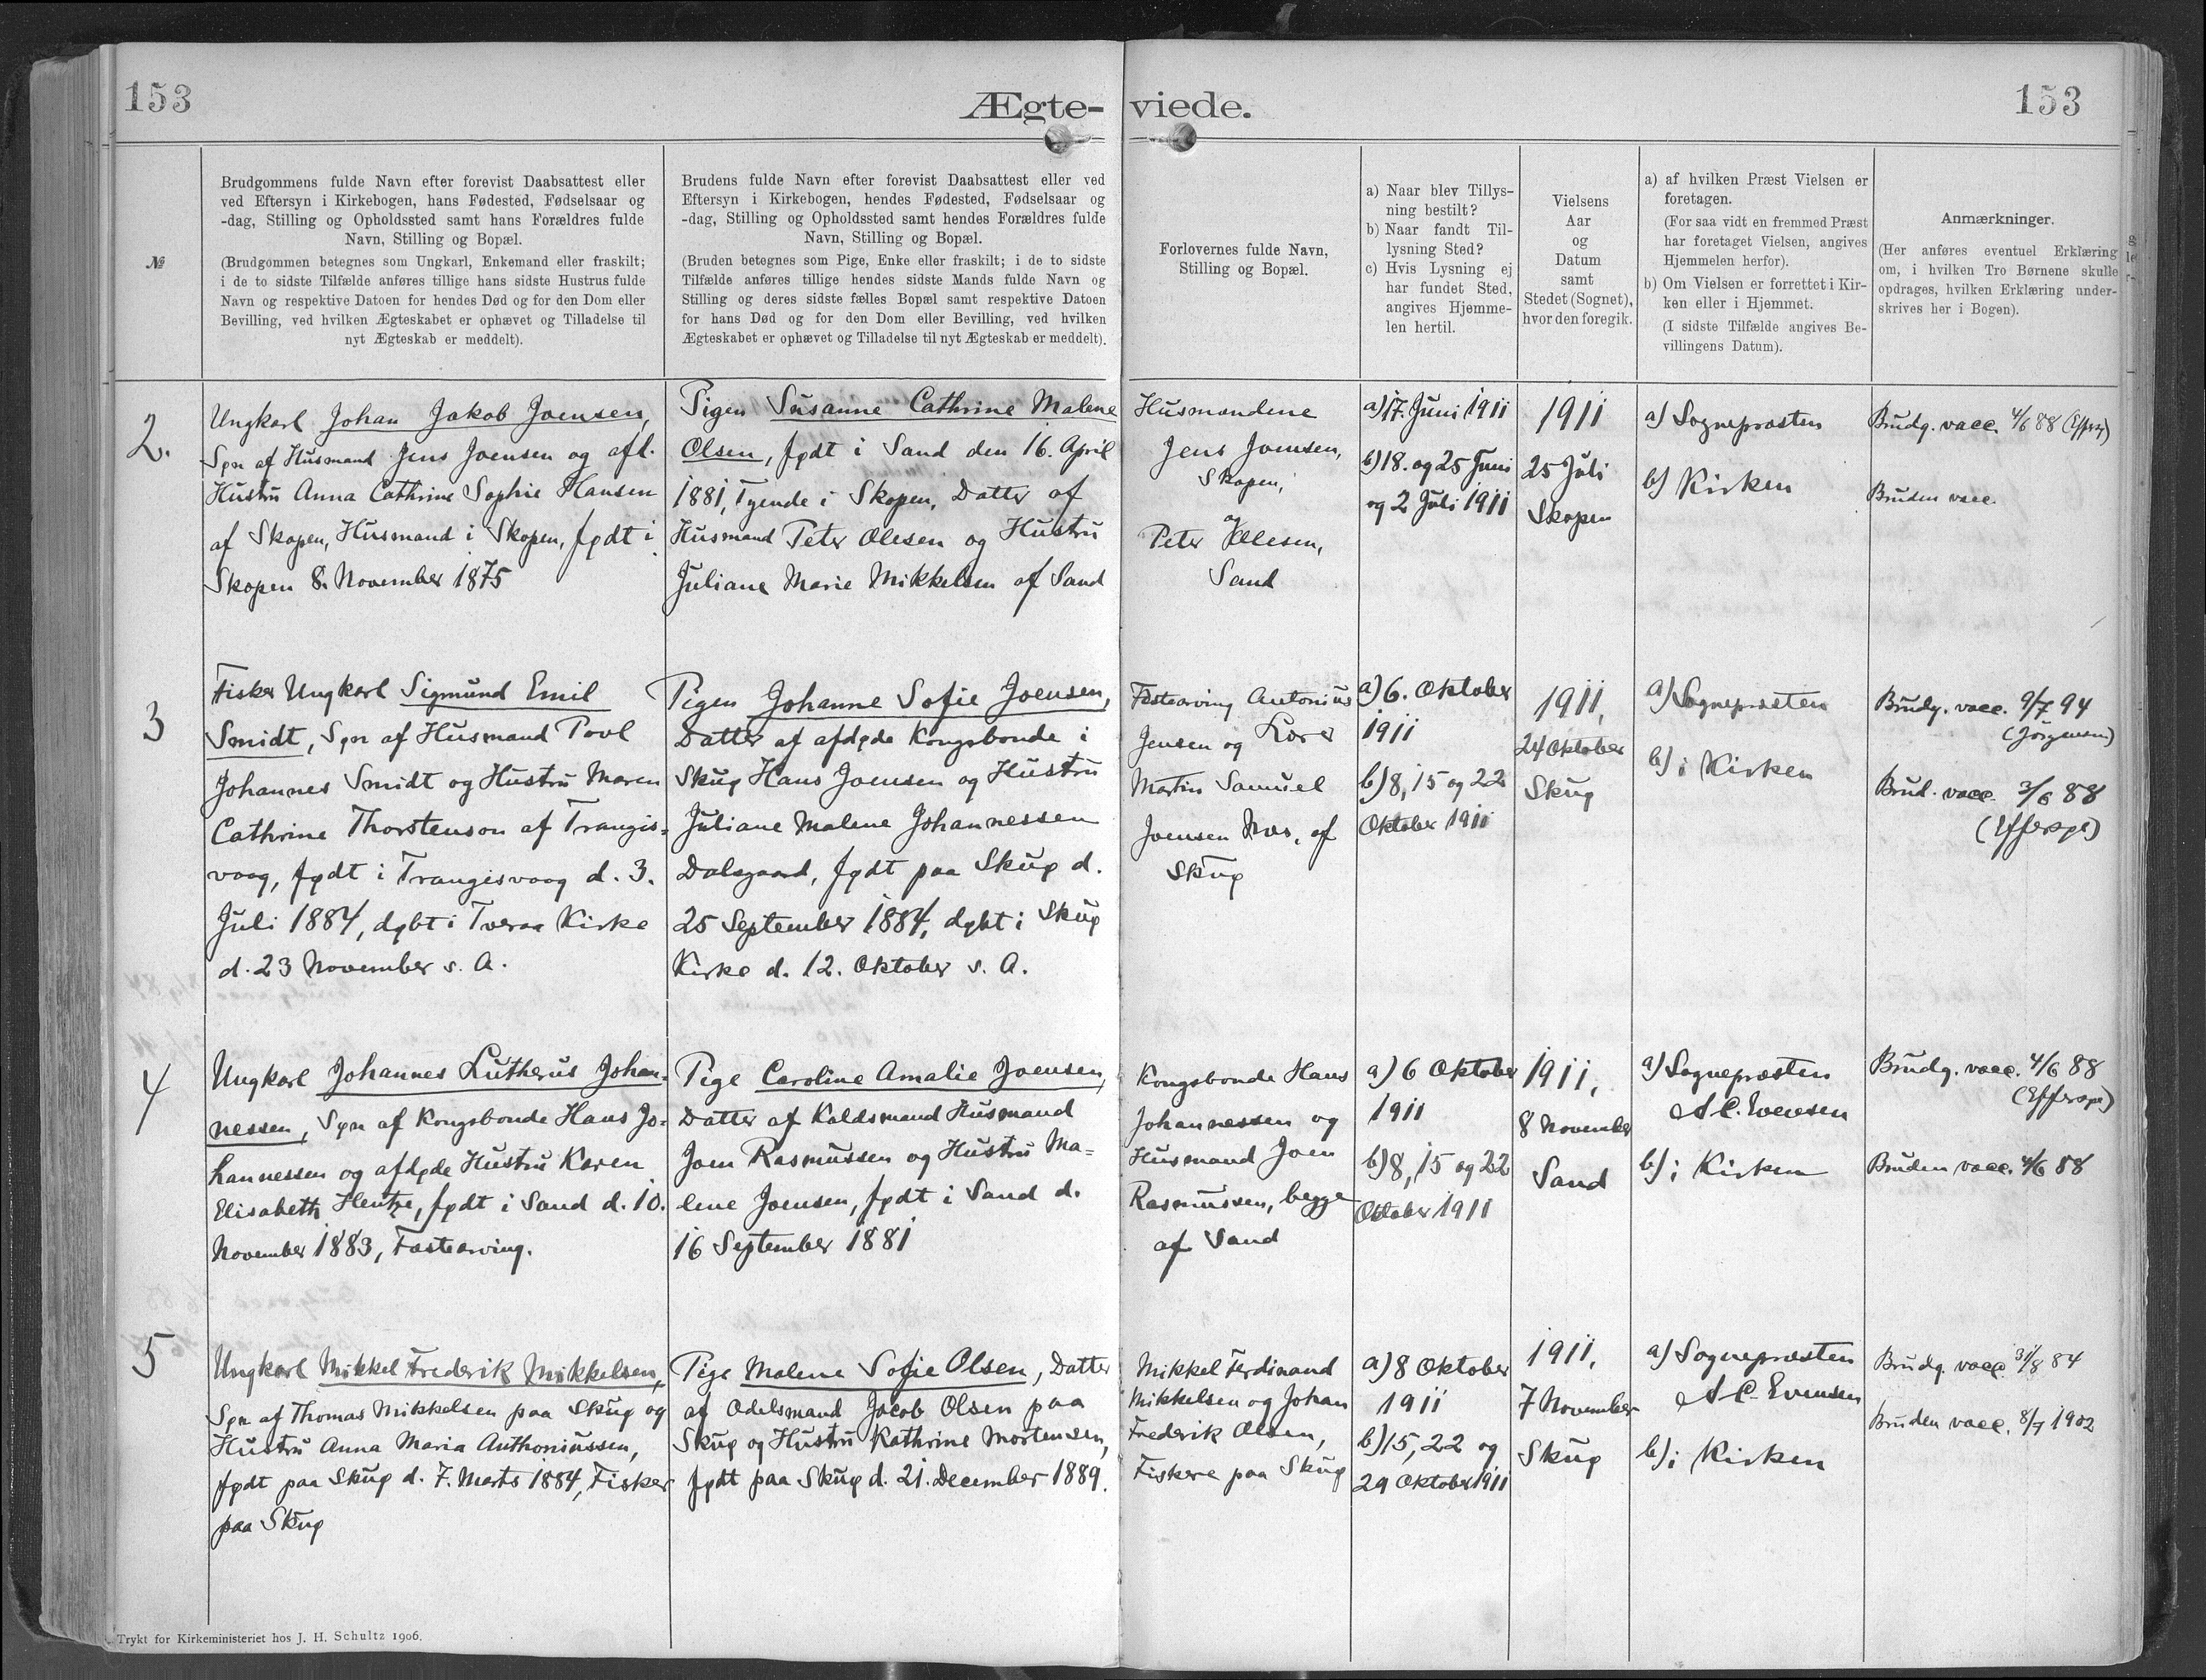 153
Ægte-
viede.
153
№
Brudgommens fulde Navn efter forevist Daabsattest eller
ved Eftersyn i Kirkebogen, hans Fødested, Fødselsaar og
-dag, Stilling og Opholdssted samt hans Forældres fulde
Navn, Stilling og Bopæl.
(Brudgommen betegnes som Ungkarl, Enkemand eller fraskilt;
i de to sidste Tilfælde anføres tillige hans sidste Hustrus fulde
Navn og respektive Datoen for hendes Død og for den Dom eller
Bevilling, ved hvilken Ægteskabet er ophævet og Tilladelse til
nyt Ægteskab er meddelt).
Brudens fulde Navn efter forevist Daabsattest eller ved
Eftersyn i Kirkebogen, hendes Fødested, Fødselsaar og
-dag, Stilling og Opholdssted samt hendes Forældres fulde
Navn, Stilling og Bopæl.
(Bruden betegnes som Pige, Enke eller fraskilt; i de to sidste
Tilfælde anføres tillige hendes sidste Mands fulde Navn og
Stilling og deres sidste fælles Bopæl samt respektive Datoen
for hans Død og for den Dom eller Bevilling, ved hvilken
Ægteskabet er ophævet og Tilladelse til nyt Ægteskab er meddelt).
Forlovernes fulde Navn,
Stilling og Bopæl.
a) Naar blev Tillys-
ning bestilt?
b) Naar fandt Til-
lysning Sted?
c) Hvis Lysning ej
har fundet Sted,
angives Hjemme-
len hertil.
Vielsens
Aar
og
Datum
samt
Stedet (Sognet),
hvor den foregik.
a) af hvilken Præst Vielsen er
foretagen.
(For saa vidt en fremmed Præst
har foretaget Vielsen, angives
Hjemmelen herfor).
b) Om Vielsen er forrettet i Kir-
ken eller i Hjemmet.
(I sidste Tilfælde angives Be-
villingens Datum).
Anmærkninger.
(Her anføres eventuel Erklæring
om, i hvilken Tro Børnene skulle
opdrages, hvilken Erklæring under-
skrives her i Bogen).
2.
Ungkarl Johan Jakob Joensen,
Søn af Husmand Jens Joensen og afd.
Hustru Anna Cathrine Sophie Hansen
af Skopen, Husmand i Skopen, født i
Skopen 8. November 1875
Pigen Susanne Cathrine Malene
Olsen, født i Sand den 16. April
1881, Tyende i Skopen, Datter af
Husmand Peter Olesen og Hustru
Juliane Marie Mikkelsen af Sand
Husmændene
Jens Joensen,
Skopen,
og
Peter Olesen,
Sand
a) 17. Juni 1911
b) 18. og 25 Juni
og 2 Juli 1911
1911
25 Juli
Skopen
a) Sognepræsten
b) Kirken
Brudg. vacc. 4/6 88
Bruden vacc.
3
Fisker Ungkarl Sigmund Emil
Smidt, Søn af Husmand Povl
Johannes Smidt og Hustru Maren
Cathrine Thorstenson af Trangis-
vaag, født i Trangisvaag d. 3.
Juli 1884, døbt i Tveraa Kirke
d. 23 November s. A.
Pigen Johanne Sofie Joensen,
Datter af afdøde Kongsbonde i
Skuø Hans Joensen og Hustru
Juliane Malene Johannessen
Dalsgaard, født paa Skuø d.
25 September 1884, døbt i Skuø
Kirke d. 12. Oktober s. A.
Fæstearving Antonius
Jensen og
Martin Samuel
Joensen Næs, af
Skuø
a) 6. Oktober
1911
b) 8, 15 og 22
Oktober 1911
1911,
24 Oktober
Skuø
a) Sognepræsten
b) i Kirken
Brudg. vacc. 9/7 94
(Jörgensen)
Brud. vacc. 3/6 88
(Effersøe)
4
Ungkarl Johannes Lutherus Johan-
nessen, Søn af Kongsbonde Hans Jo-
hannessen og afdøde Hustru Karen
Elisabeth Hentze, født i Sand d. 10.
November 1883, Fæstearving.
Pige Caroline Amalie Joensen,
Datter af Koldsmand Husmand
Joen Rasmussen og Hustru Ma-
lene Joensen, født i Sand d.
16 September 1881
Kongsbonde Hans
Johannessen og
Husmand Joen
Rasmussen, begge
af Sand
a) 6 Oktober
1911
b) 8, 15 og 22
Oktober 1911
1911,
8 November
Sand
a) Sognepræsten
A C. Evensen
b) i Kirken
Brudg. vacc. 4/6 88
(Effersøe)
Bruden vacc. 4/6 88
5
Ungkarl Mikkel Frederik Mikkelsen,
Søn af Thomas Mikkelsen paa Skuø og
Hustru Anna Maria Anthoniussen,
født paa Skuø d. 7. Marts 1884, Fisker
paa Skuø
Pige Malene Sofie Olsen, Datter
af Odelsmand Jacob Olsen paa
Skuø og Hustru Kathrine Mortensen,
født paa Skuø d. 21. December 1889.
Mikkel Ferdinand
Mikkelsen og Johan
Frederik Olsen,
Fiskere paa Skuø
a) 8 Oktober
1911
b) 15, 22 og
29 Oktober 1911
1911,
7 November
Skuø
a) Sognepræsten
A C. Evensen
b) i Kirken
Brudg. vacc. 31/8 84
Bruden vacc. 8/7 1902
Trykt for Kirkeministeriet hos J. H. Schultz 1906.